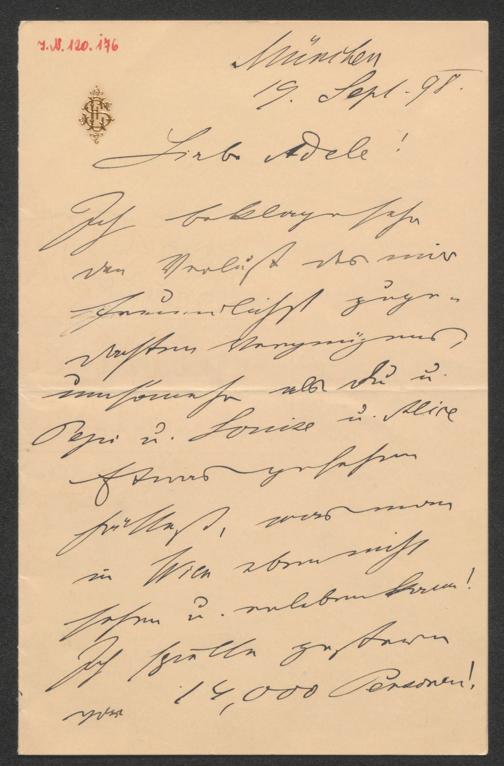 J.N. 120.176
München
19. Sept. 98.
Liebe Adele!
Ich beklage sehr
den Verlust des mir
freundlichst zuge-
dachten Vergnügens,
umsomehr als Du u.
Pepi u. Louise u. Alice
Etwas gesehen
hättest, was man
in Wien eben nicht
sehen u. erleben kann!
Ich spielte gestern
vor 14,000 Personen!